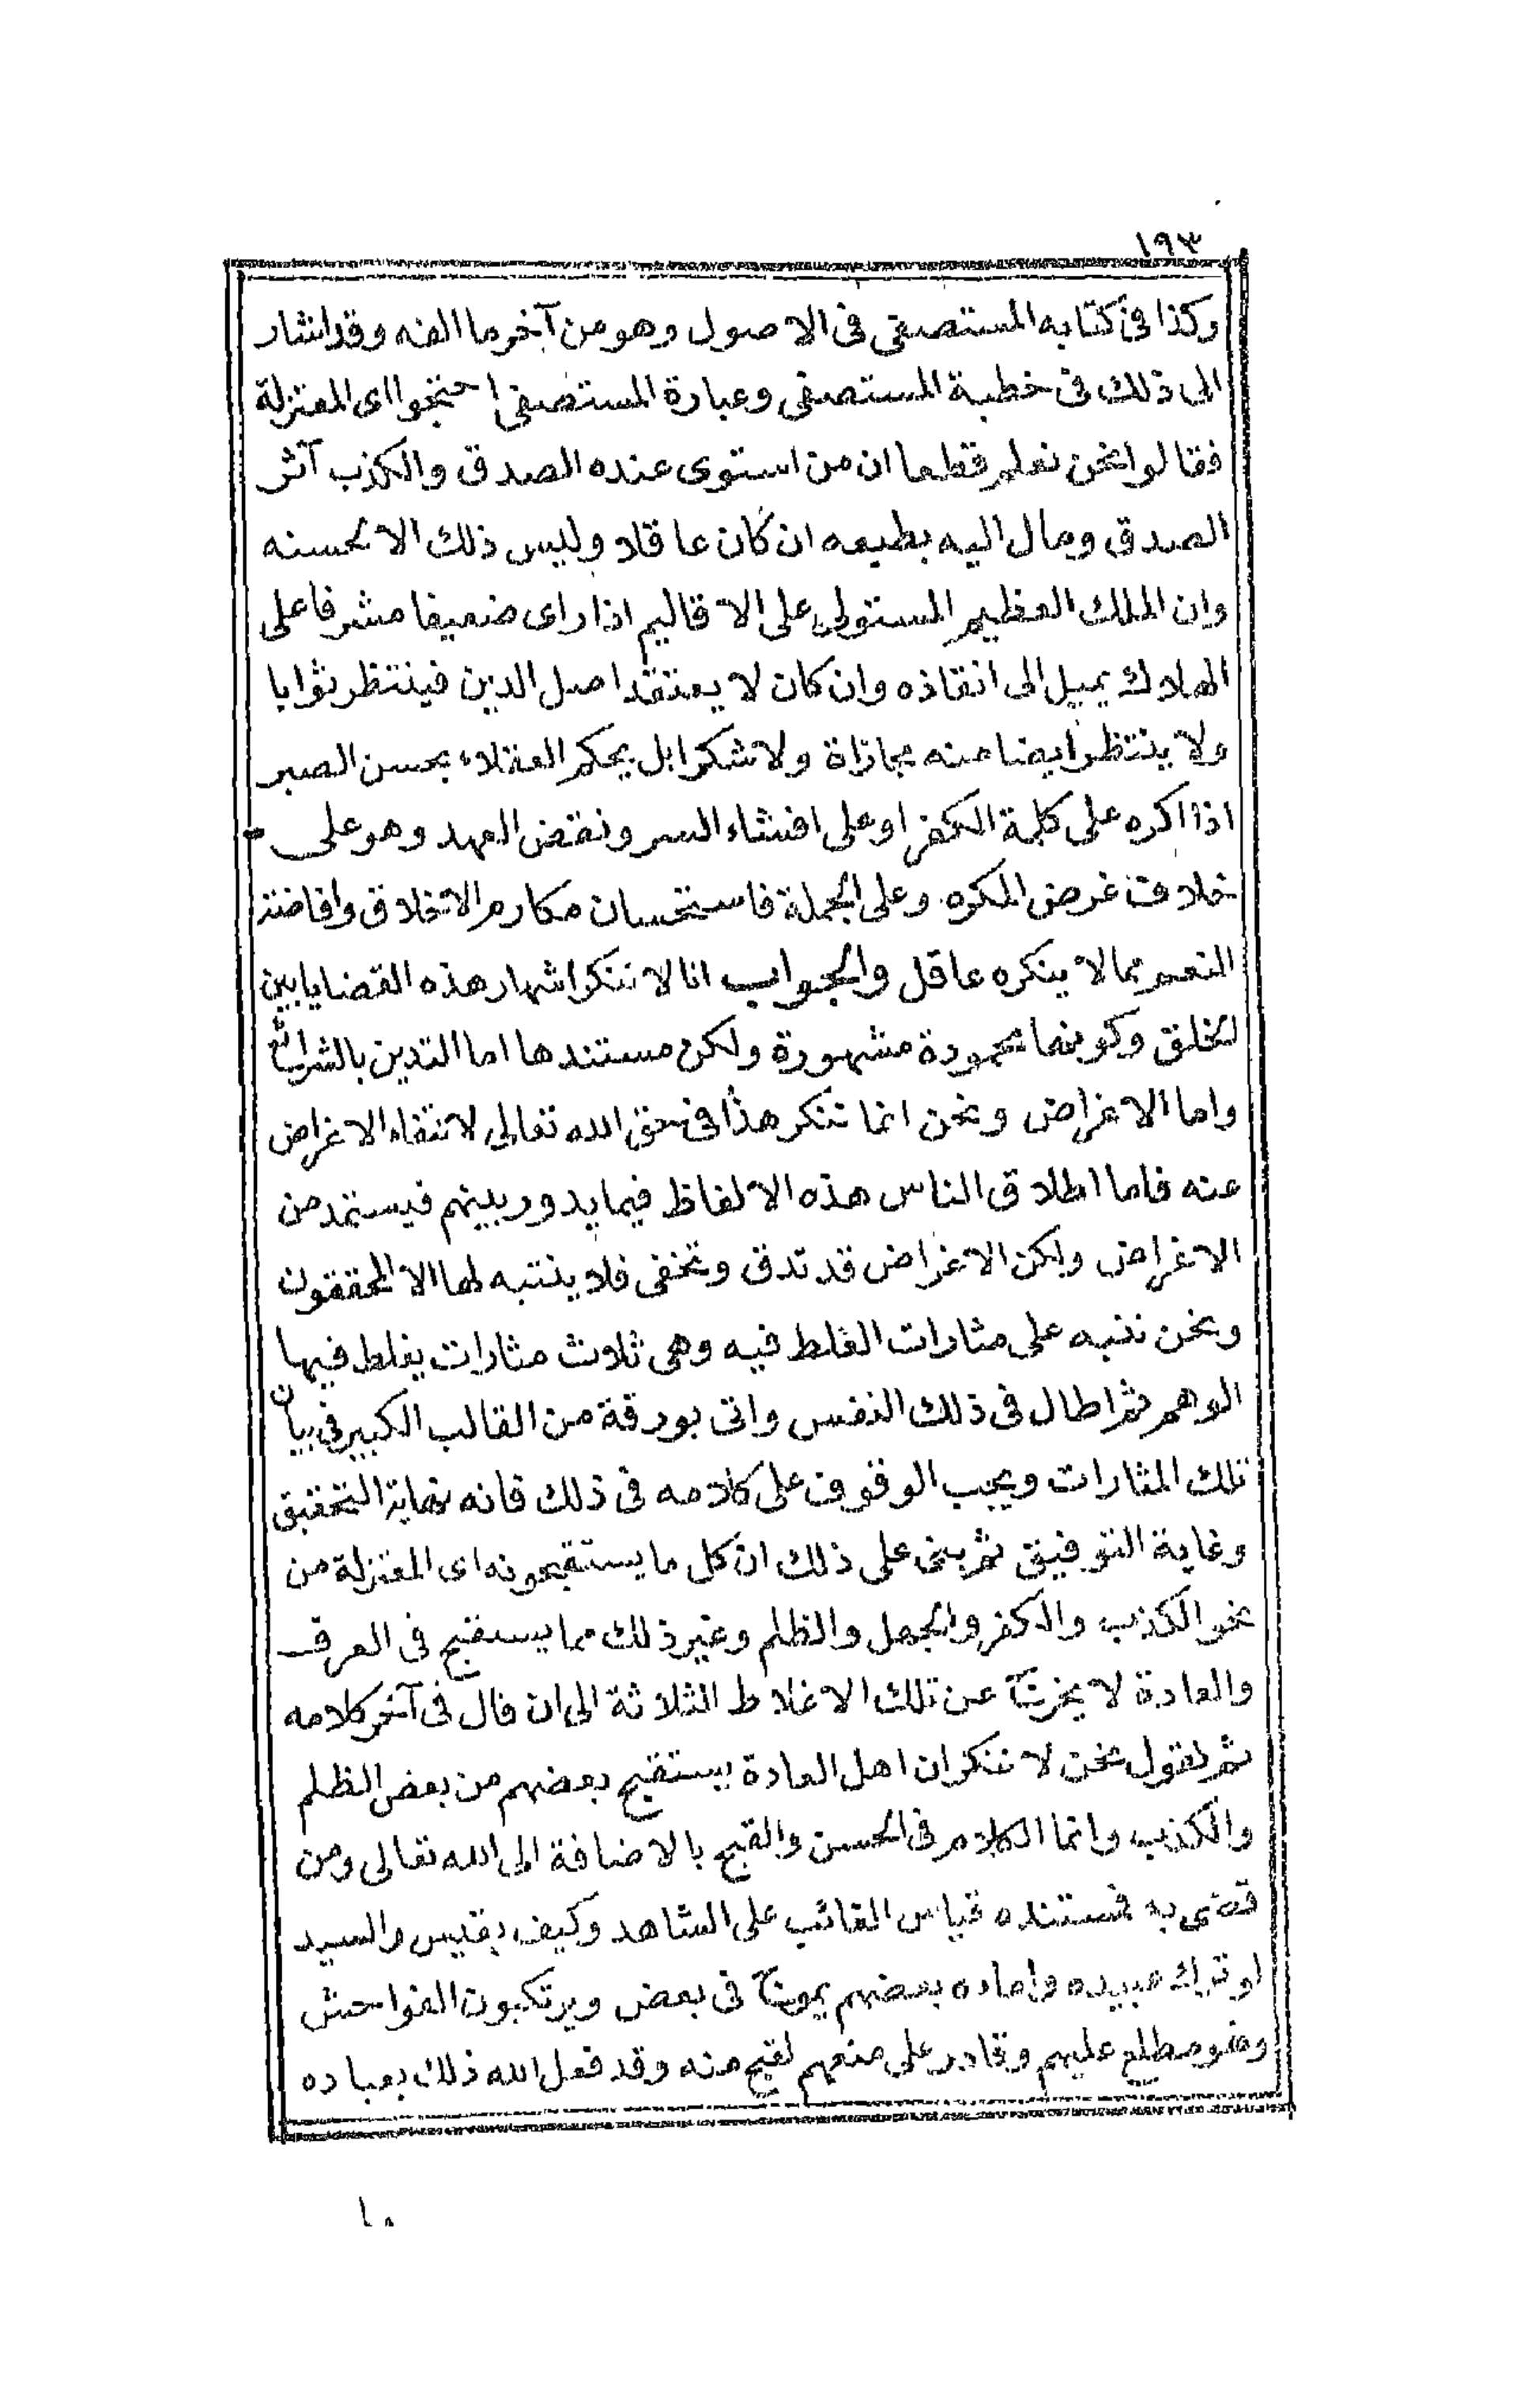 ١٩٣
وكذا في كتابه المستصفى فى الاصول وهو من آخر ما الفه وقد اشار
الى ذلك فى خطبة المستصفى وعبارة المستصفى احتجوا اى المعتزلة
فقالوا نحن نعلم قطعا ان من استوى عنده الصدق والكذب آثر
الصدق ومال اليه بطبعه ان كان عاقلا وليس ذلك الا لحسنه
وان الملك العظيم المستولى على الاقاليم اذا راى ضعيفا مشرفا على
الهلاك يميل الى انقاذه وان كان لا يعتقد اصل الدين فينتظر ثوابا
ولا ينتظر ايضا منه مجازاة ولا شكرا بل يحكم العقلاء بحسن الصبر
اذا اكره على كلمة الكفر او على افشاء السر ونقض العهد وهو على
خلاف غرض المكره وعلى الجملة فاستحسان مكارم الاخلاق وافاضة
النعم مما لا ينكره عاقل والجواب انا لا ننكر اشهار هذه القضايا بين
الخلق وكونها محمودة مشهورة ولكن مستندها اما التدين بالشرائع
واما الاغراض ونحن انما ننكر هذا فى حق الله تعالى لانتفاء الاغراض
عنه فاما اطلاق الناس هذه الالفاظ فيما يدور بينهم فيستمد من
الاغراض ولكن الاغراض قد تدق وتخفى فلا ينتبه لها الا المحققون
ونحن ننبه على مثارات الغلط فيه وهى ثلاث مثارات يغلط فيها
الوهم ثم اطال فى ذلك النفس واتى بورقة من القالب الكبير فى بيان
تلك المثارات ويجب الوقوف على كلامه فى ذلك فانه نهاية التحقيق
وغاية التوفيق ثم بنى على ذلك ان كل ما يستقبحونه اى المعتزلة من
نحو الكذب والكفر والجهل والظلم وغير ذلك مما يستقبح فى العرف
والعادة لا يخرج عن تلك الاغلاط الثلاثة الى ان قال فى آخر كلامه
ثم نقول نحن لا ننكر ان اهل العادة يستقبح بعضهم من بعض الظلم
والكذب وانما الكلام فى الحسن والقبح بالاضافة الى الله تعالى ومن
قضى به فمستنده قياس الغائب على الشاهد وكيف يقيس والسيد
لو ترك عبيده واماءه بعضهم يموج فى بعض ويرتكبون الفواحش
وهو مطلع عليهم وقادر على منعهم لقبح منه وقد فعل الله ذلك بعباده